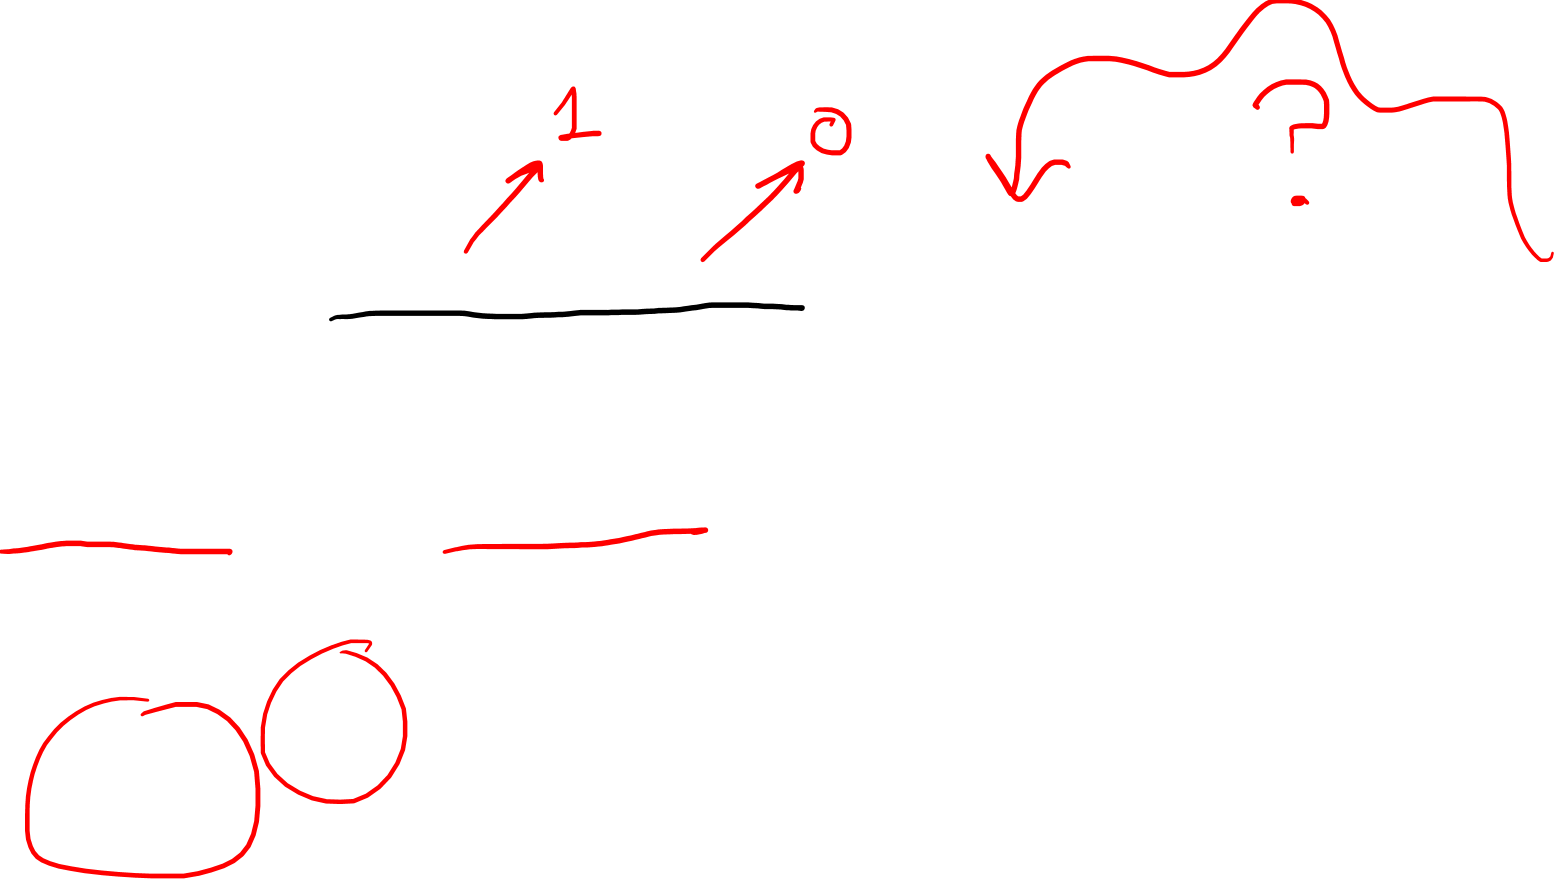 1 0 ?